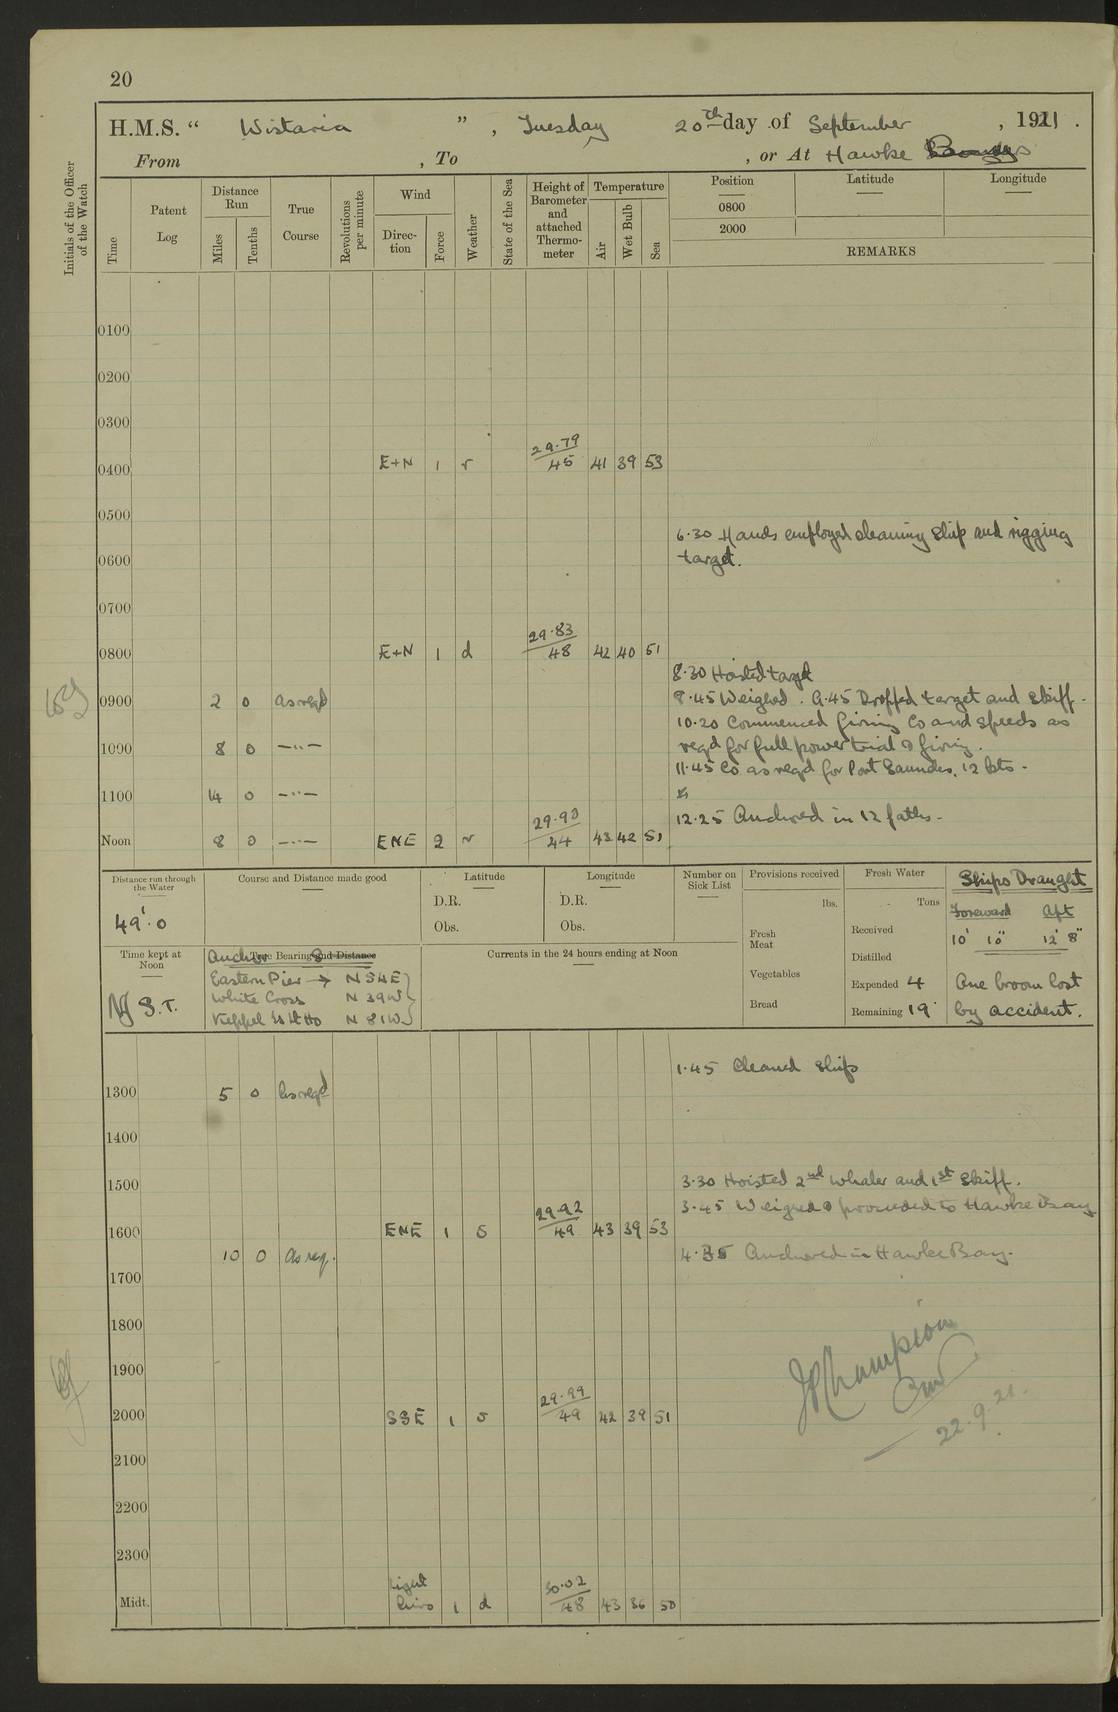 20
H.M.S. " Wistaria ", Tuesday 20th day of September, 1921.
From , To , or At Hawke Bay
Initials of the Officer of the Watch
Time
Patent Log
Distance Run
Miles
Tenths
True Course
Revolutions per minute
Wind
Direc-tion
Force
Weather
State of the Sea
Height of Barometer and attached Thermo-meter
Temperature
Air
Wet Bulb
Sea
Position
Latitude
Longitude
0800
2000
REMARKS
0100
0200
0300
0400 E+N 1 r 29.79 45 41 39 53
0500
6.30 Hands employed cleaning ship and rigging
0600
target.
0700
0800 E+N 1 d 29.83 48 42 40 51
8.30 Hoisted target
0900 2 0 as reqd
9.45 Weighed. 9.45 Dropped target and skiff.
10.20 Commenced firing Co and speeds as
1000 8 0 —"—
reqd for full power trial & firing.
11.45 Co as reqd for Port Saunders. 12 kts.
1100 14 0 —"—
12.25 Anchored in 12 faths.
Noon 8 0 —"— ENE 2 r 29.90 44 43 42 51
Distance run through the Water
49'.0
Course and Distance made good
Latitude
D.R.
Obs.
Longitude
D.R.
Obs.
Number on Sick List
Provisions received
lbs.
Fresh Meat
Vegetables
Bread
Fresh Water
Tons
Received
Distilled
Expended 4
Remaining 19
Ships Draught
Foreward Aft
10' 10" 12' 8"
One broom lost
by accident.
Time kept at Noon
S.T.
Anchor True Bearing and Distance
Eastern Pier → N 54 E
White Cross N 39 W
Keppel Is Lt Ho N 81 W
Currents in the 24 hours ending at Noon
1.45 Cleaned ship
1300 5 0 as reqd
1400
1500
3.30 Hoisted 2nd Whaler and 1st Skiff.
3.45 Weighed & proceeded to Hawke Bay
1600 ENE 1 o 29.92 49 43 39 53
10 0 as req.
4.35 Anchored in Hawke Bay.
1700
1800
1900
JPChampion
2000 SSE 1 o 29.99 49 42 39 51
22.9.21.
2100
2200
2300
Midt. Light Airs 1 d 30.02 48 43 36 50